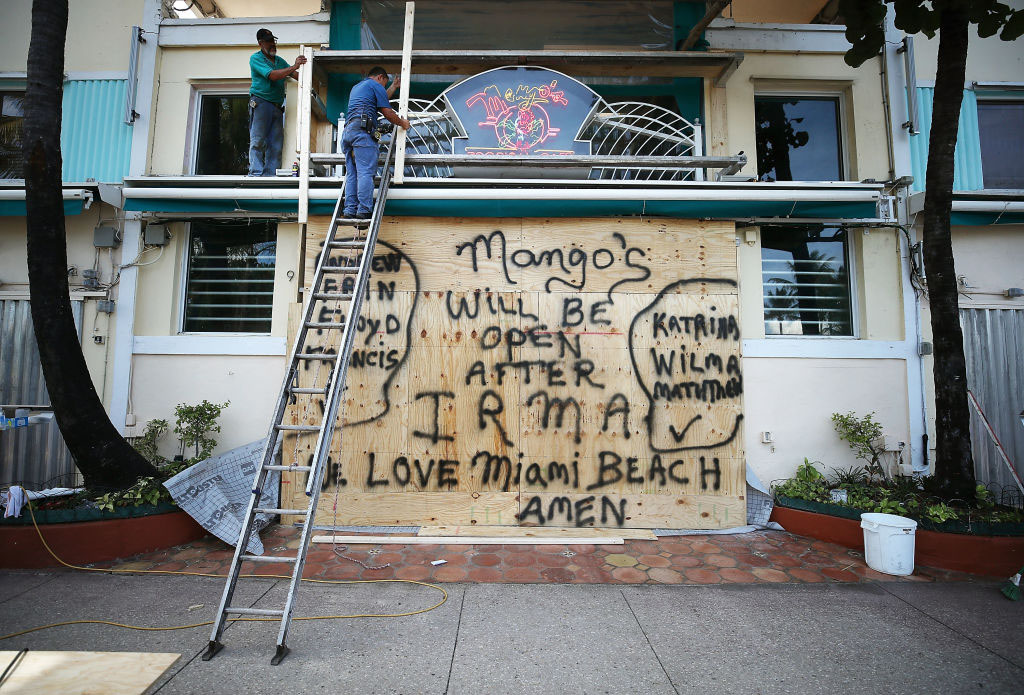 Mango's
WILL BE
OPEN
AFTER
IRMA
WE LOVE MIAMI BEACH
AMEN
ANDREW
ERIN
FLOYD
FRANCIS
KATRINA
WILMA
MATTHEW
Mango's